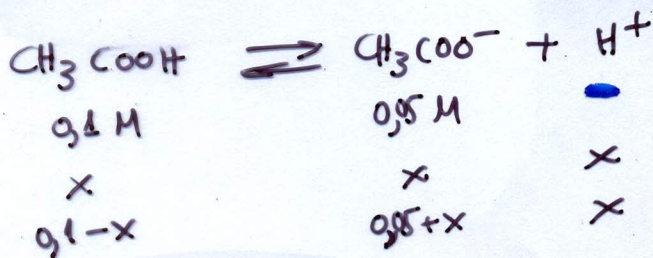 CH₃COOH ⇌ CH₃COO⁻ + H⁺
0,1 M 0,05 M –
x x x
0,1-x 0,05+x x